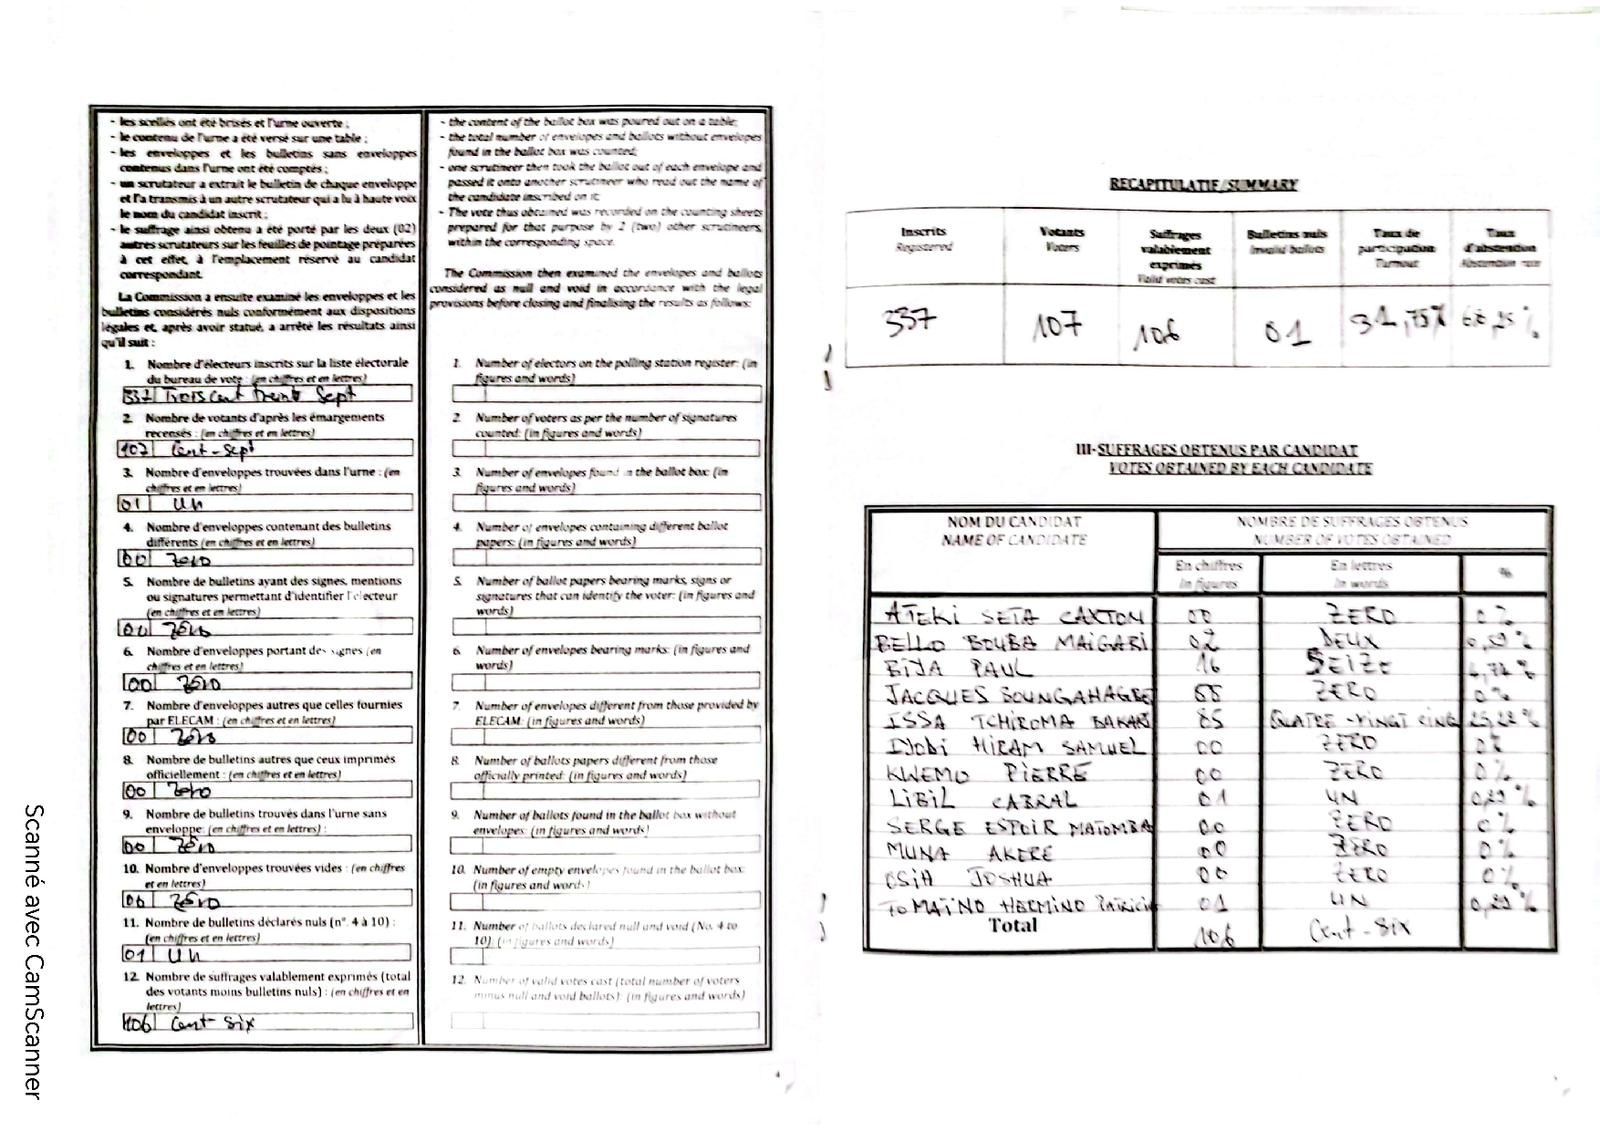 - les scellés ont été brisés et l'urne ouverte ;
- le contenu de l'urne a été versé sur une table ;
- les enveloppes et les bulletins sans enveloppes
contenus dans l'urne ont été comptés ;
- un scrutateur a extrait le bulletin de chaque enveloppe
et l'a transmis à un autre scrutateur qui a lu à haute voix
le nom du candidat inscrit ;
- le suffrage ainsi obtenu a été porté par les deux (02)
autres scrutateurs sur les feuilles de pointage préparées
à cet effet, à l'emplacement réservé au candidat
correspondant.
La Commission a ensuite examiné les enveloppes et les
bulletins considérés nuls conformément aux dispositions
légales et, après avoir statué, a arrêté les résultats ainsi
qu'il suit :
1. Nombre d'électeurs inscrits sur la liste électorale
du bureau de vote : (en chiffres et en lettres)
337 Trois cent trente Sept
2. Nombre de votants d'après les émargements
recensés : (en chiffres et en lettres)
107 Cent-Sept
3. Nombre d'enveloppes trouvées dans l'urne : (en
chiffres et en lettres)
01 un
4. Nombre d'enveloppes contenant des bulletins
différents (en chiffres et en lettres)
00 Zero
5. Nombre de bulletins ayant des signes, mentions
ou signatures permettant d'identifier l'électeur
(en chiffres et en lettres)
00 Zéro
6. Nombre d'enveloppes portant des signes (en
chiffres et en lettres)
00 Zéro
7. Nombre d'enveloppes autres que celles fournies
par ELECAM : (en chiffres et en lettres)
00 Zéro
8. Nombre de bulletins autres que ceux imprimés
officiellement : (en chiffres et en lettres)
00 Zero
9. Nombre de bulletins trouvés dans l'urne sans
enveloppe: (en chiffres et en lettres) :
00 Zéro
10. Nombre d'enveloppes trouvées vides : (en chiffres
et en lettres)
00 Zéro
11. Nombre de bulletins déclarés nuls (n°. 4 à 10) :
(en chiffres et en lettres)
01 un
12. Nombre de suffrages valablement exprimés (total
des votants moins bulletins nuls) : (en chiffres et en
lettres)
106 Cent Six
- the content of the ballot box was poured out on a table;
- the total number of envelopes and ballots without envelopes
found in the ballot box was counted;
- one scrutineer then took the ballot out of each envelope and
passed it onto another scrutineer who read out the name of
the candidate inscribed on it;
- The vote thus obtained was recorded on the counting sheets
prepared for that purpose by 2 (two) other scrutineers,
within the corresponding space.
The Commission then examined the envelopes and ballots
considered as null and void in accordance with the legal
provisions before closing and finalising the results as follows:
1. Number of electors on the polling station register: (in
figures and words)
2. Number of voters as per the number of signatures
counted: (in figures and words)
3. Number of envelopes found in the ballot box: (in
figures and words)
4. Number of envelopes containing different ballot
papers: (in figures and words)
5. Number of ballot papers bearing marks, signs or
signatures that can identify the voter: (in figures and
words)
6. Number of envelopes bearing marks: (in figures and
words)
7. Number of envelopes different from those provided by
ELECAM: (in figures and words)
8. Number of ballots papers different from those
officially printed: (in figures and words)
9. Number of ballots found in the ballot box without
envelopes: (in figures and words)
10. Number of empty envelopes found in the ballot box:
(in figures and words)
11. Number of ballots declared null and void (No. 4 to
10): (in figures and words)
12. Number of valid votes cast (total number of voters
minus null and void ballots): (in figures and words)
4
RECAPITULATIF/SUMMARY
Inscrits Registered | Votants Voters | Suffrages valablement exprimés Valid votes cast | Bulletins nuls Invalid ballots | Taux de participation Turnout | Taux d'abstention Abstention rate
337 | 107 | 106 | 01 | 31,75% | 68,25 %
III- SUFFRAGES OBTENUS PAR CANDIDAT
VOTES OBTAINED BY EACH CANDIDATE
NOM DU CANDIDAT NOMBRE DE SUFFRAGES OBTENUS
NAME OF CANDIDATE NUMBER OF VOTES OBTAINED
En chiffres En lettres %
In figures In words
ATEKI SETA CAXTON 00 ZERO 0 %
BELLO BOUBA MAIGARI 02 DEUX 0,59 %
BIYA PAUL 16 SEIZE 4,74 %
JACQUES BOUNGAHAGBE ZERO 0 %
ISSA TCHIROMA BAKARI 85 QUATRE-VINGT CINQ 25,22 %
IYODI HIRAM SAMUEL 00 ZERO 0%
KWEMO PIERRE 00 ZERO 0 %
LIBIL CABRAL 01 UN 0,29 %
SERGE ESPOIR MATOMBA 00 ZERO 0 %
MUNA AKERE 00 ZERO 0 %
OSIH JOSHUA 00 ZERO 0 %
TOMAINO HERMINO PATRICIA 01 UN 0,29 %
Total 106 Cent-Six
Scanné avec CamScanner